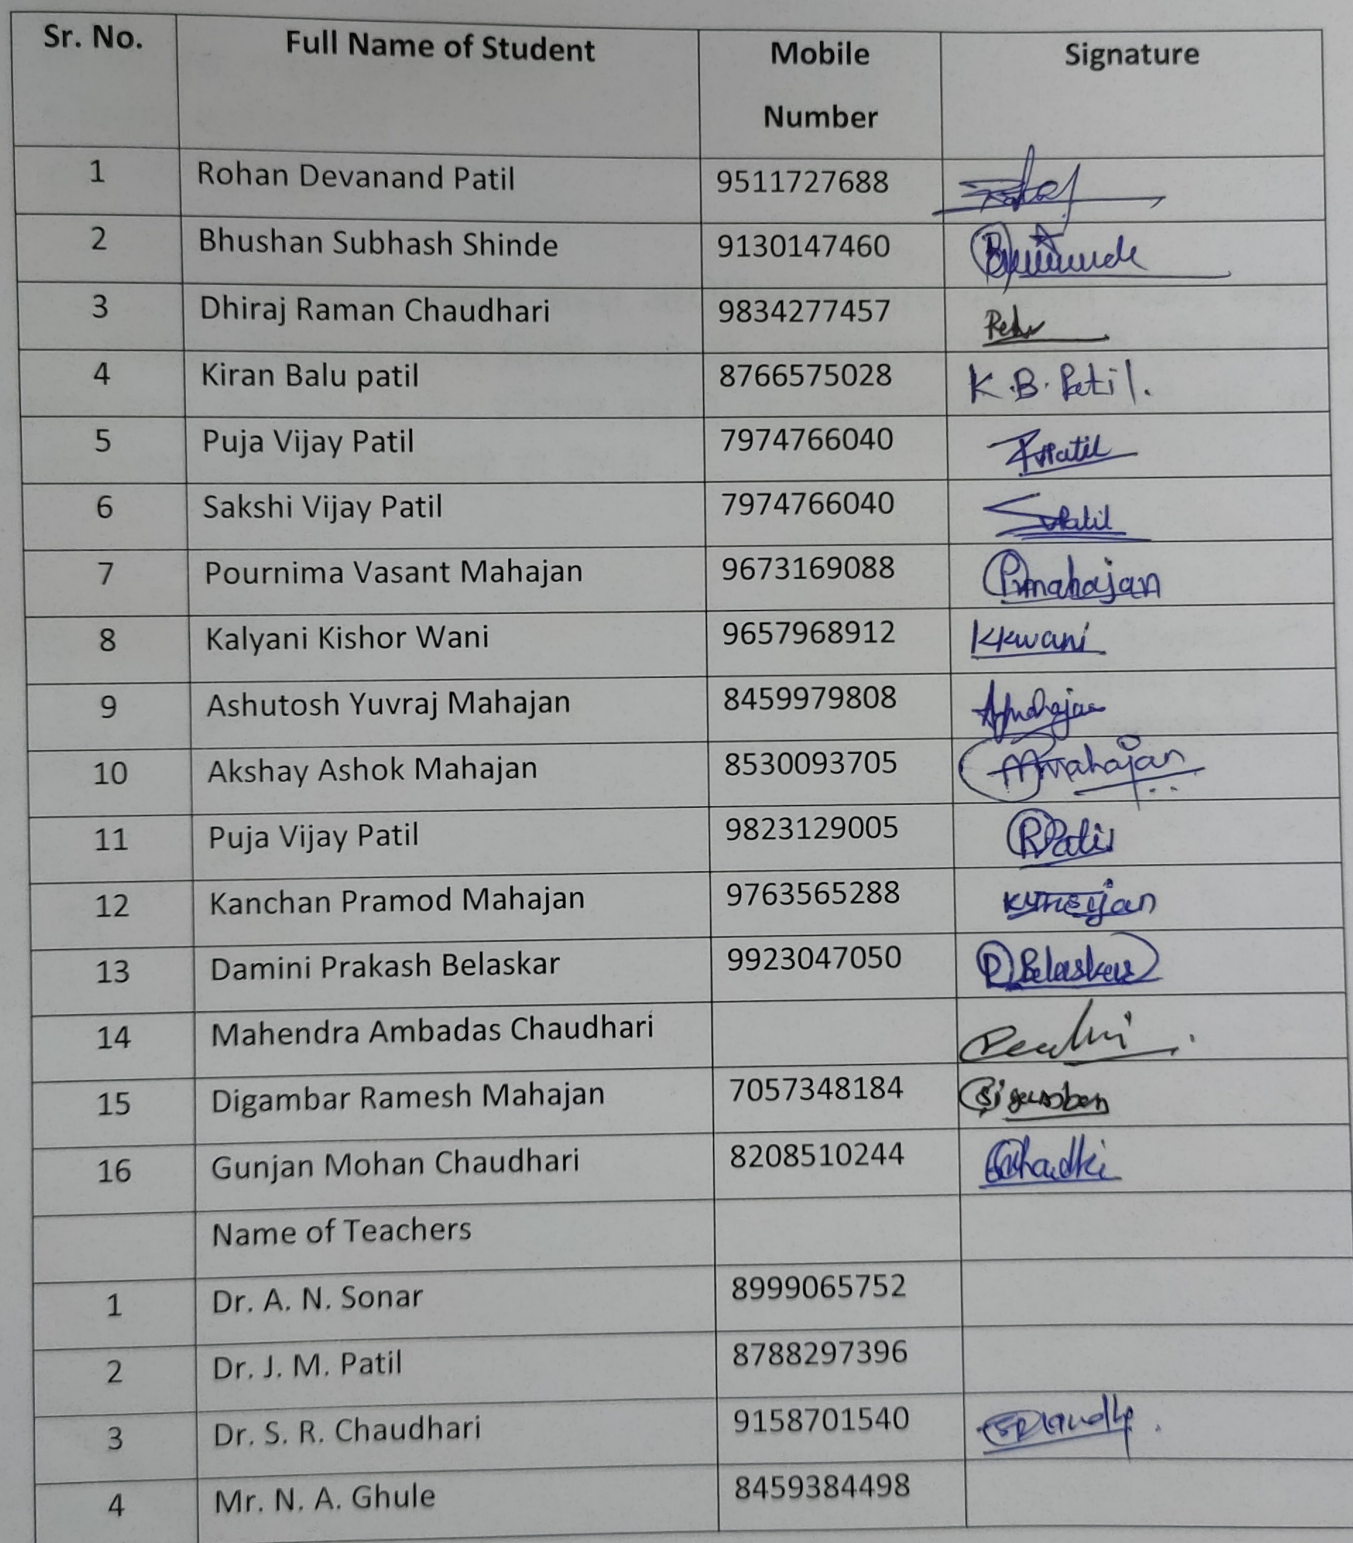 Sr. No. Full Name of Student Mobile Number Signature
1 Rohan Devanand Patil 9511727688
2 Bhushan Subhash Shinde 9130147460
3 Dhiraj Raman Chaudhari 9834277457
4 Kiran Balu patil 8766575028 K.B. Patil.
5 Puja Vijay Patil 7974766040 PVPatil
6 Sakshi Vijay Patil 7974766040 SVPatil
7 Pournima Vasant Mahajan 9673169088 Pvmahajan
8 Kalyani Kishor Wani 9657968912 KKwani
9 Ashutosh Yuvraj Mahajan 8459979808
10 Akshay Ashok Mahajan 8530093705 AAmahajan
11 Puja Vijay Patil 9823129005
12 Kanchan Pramod Mahajan 9763565288
13 Damini Prakash Belaskar 9923047050 DPBelaskar
14 Mahendra Ambadas Chaudhari
15 Digambar Ramesh Mahajan 7057348184
16 Gunjan Mohan Chaudhari 8208510244
Name of Teachers
1 Dr. A. N. Sonar 8999065752
2 Dr. J. M. Patil 8788297396
3 Dr. S. R. Chaudhari 9158701540
4 Mr. N. A. Ghule 8459384498